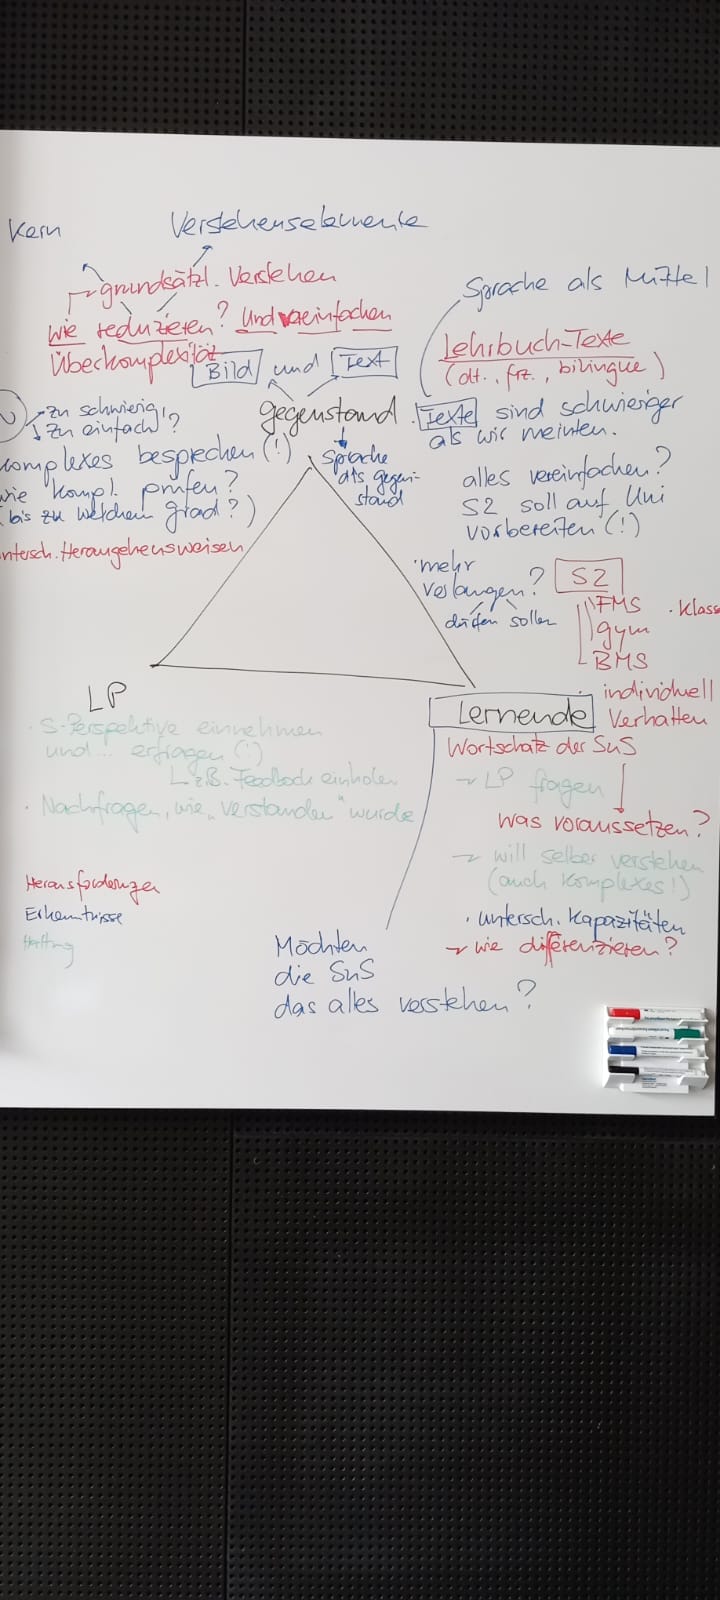 Kern
Verstehenselemente
grundsätzl. Verstehen
wie reduzieren? Und vereinfachen
Überkomplexität
Bild und Text
Gegenstand
Sprache als Gegen-
stand
zu schwierig,
zu einfach?
komplexes besprechen (!)
wie kompl. prüfen?
(bis zu welchem Grad?)
untersch. Herangehensweisen
Sprache als Mittel
Lehrbuch-Texte
(dt., frz., bilingue)
Texte sind schwieriger
als wir meinten.
alles vereinfachen?
S2 soll auf Uni
vorbereiten (!)
mehr
verlangen?
dürfen sollen
S2
FMS
Gym
BMS
· Klass
LP
· S-Perspektive einnehmen
und... erfragen (!)
z.B. Feedback einholen
· Nachfragen, wie „verstanden" wurde
Lernende
· individuell
Verhalten
Wortschatz der SuS
→ LP fragen
was voraussetzen?
→ will selber verstehen
(auch Komplexes!)
· untersch. Kapazitäten
→ wie differenzieren?
Möchten
die SuS
das alles verstehen?
Herausforderungen
Erkenntnisse
Haltung